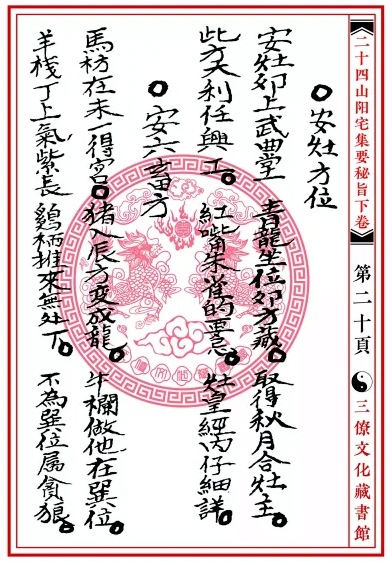 二十四山阳宅集要秘旨下卷 第二十頁 三僚文化藏書館
○安灶方位
安灶卯上武曲堂 青龍坐位卯方藏○ 取得秋月合灶主○
此方大利任興工○ 紅嘴朱雀的要忌○ 灶皇經內仔細詳○
○安六畜方
馬枋在未一得宮○ 猪入辰方变成龍○ 牛欄做他在巽位○
羊棧丁上氣紫長 鷄栖推來無处下○ 不為巽位屬貪狼○